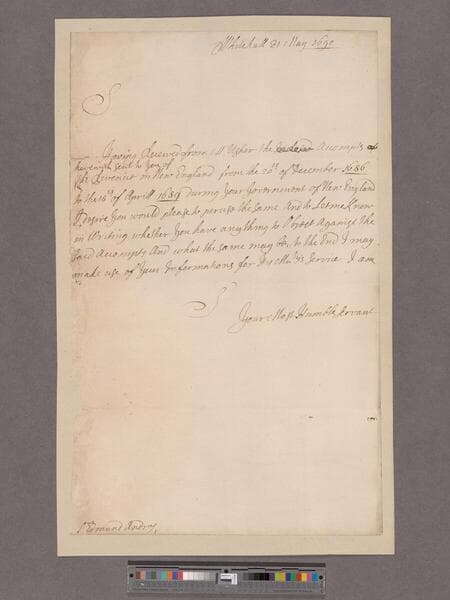 Whitehall 31 May 1690
S
Having Received from Mr Usher the Accompts of
herewith sent to you of
the Revenue in New England from the 20th of December 1686
to the 18th of Aprill 1689 during your Government of New England
I desire you would please to peruse the same And to Let me know
in Writing whether you have anything to Object Against the
said Accompts And what the same may be, to the End I may
make use of Your Informations for Service I am
S
Your Most Humble servant
Sr Edmund Andros